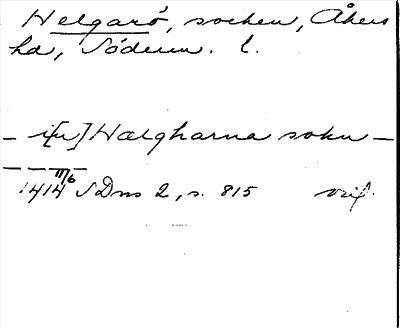 Helgarö, socken, Åkers
hd, Söderm. l.
– i[n] Hælgharna sokn –
– – –
1414 11/6 SDns 2, s. 815 orig.